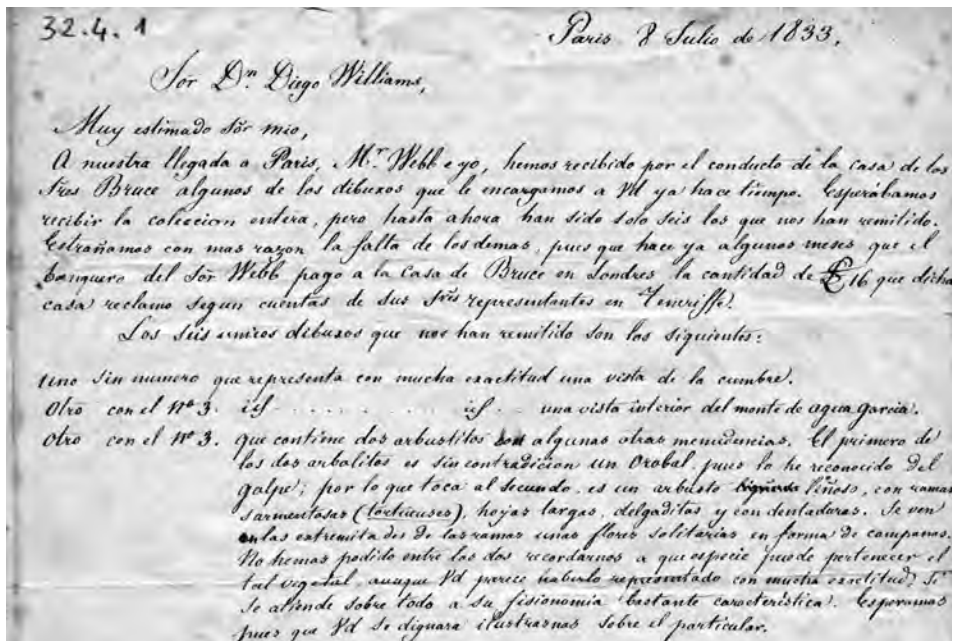 32.4.1
Paris 8 Julio de 1833,
Sor Dn. Diego Williams,
Muy estimado Sõr mio,
A nuestra llegada a Paris, Mr. Webb e yo, hemos recibido por el conducto de la casa de los
Sres Bruce algunos de los dibuxos que le encargamos a Vd ya hace tiempo. Esperábamos
recibir la coleccion entera, pero hasta ahora han sido solo seis los que nos han remitido.
Estrañamos con mas razon la falta de los demas, pues que hace ya algunos meses que el
banquero del Sõr Webb pago a la Casa de Bruce en Londres la cantidad de £16 que dicha
casa reclamo segun cuentas de sus Sres representantes en Teneriffe.
Los seis unicos dibuxos que nos han remitido son los siguientes:
Uno sin numero que representa con mucha exactitud una vista de la cumbre.
Otro con el Nº 3. id . . . . . . id . . una vista interior del monte de agua Garcia.
Otro con el Nº 3. que contiene dos arbustitos con algunas otras menudencias. El primero de
los dos arbolitos es sin contradicion un Orobal, pues lo he reconocido del
golpe; por lo que toca al segundo, es un arbusto liñoso, con ramas
sarmentosas (tortueuses), hojas largas, delgaditas y con dentaduras. Se ven
en las extremitades de las ramas unas flores solitarias en forma de campanas.
No hemos podido entre los dos recordarnos a que especie puede pertenecer el
tal vegetal, aunque Vd parece haberlo representado con mucha exactitud, Si
se atiende sobre todo a su fisionomia bastante caracteristica. Esperamos
pues que Vd se dignara ilustrasnos sobre el particular.